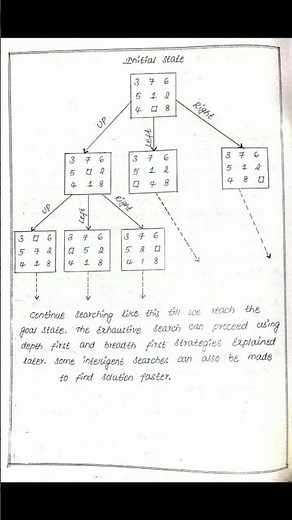 Initial State
3 7 6
5 1 2
4 □ 8
UP
Left
Right
3 7 6
5 □ 2
4 1 8
3 7 6
5 1 2
□ 4 8
3 7 6
5 1 2
4 8 □
UP
Left
Right
3 □ 6
5 7 2
4 1 8
3 7 6
□ 5 2
4 1 8
3 7 6
5 2 □
4 1 8
Continue searching like this till we reach the
goal state. The Exhaustive search can proceed using
depth first and breadth first strategies Explained
later. Some intelligent searches can also be made
to find solution faster.